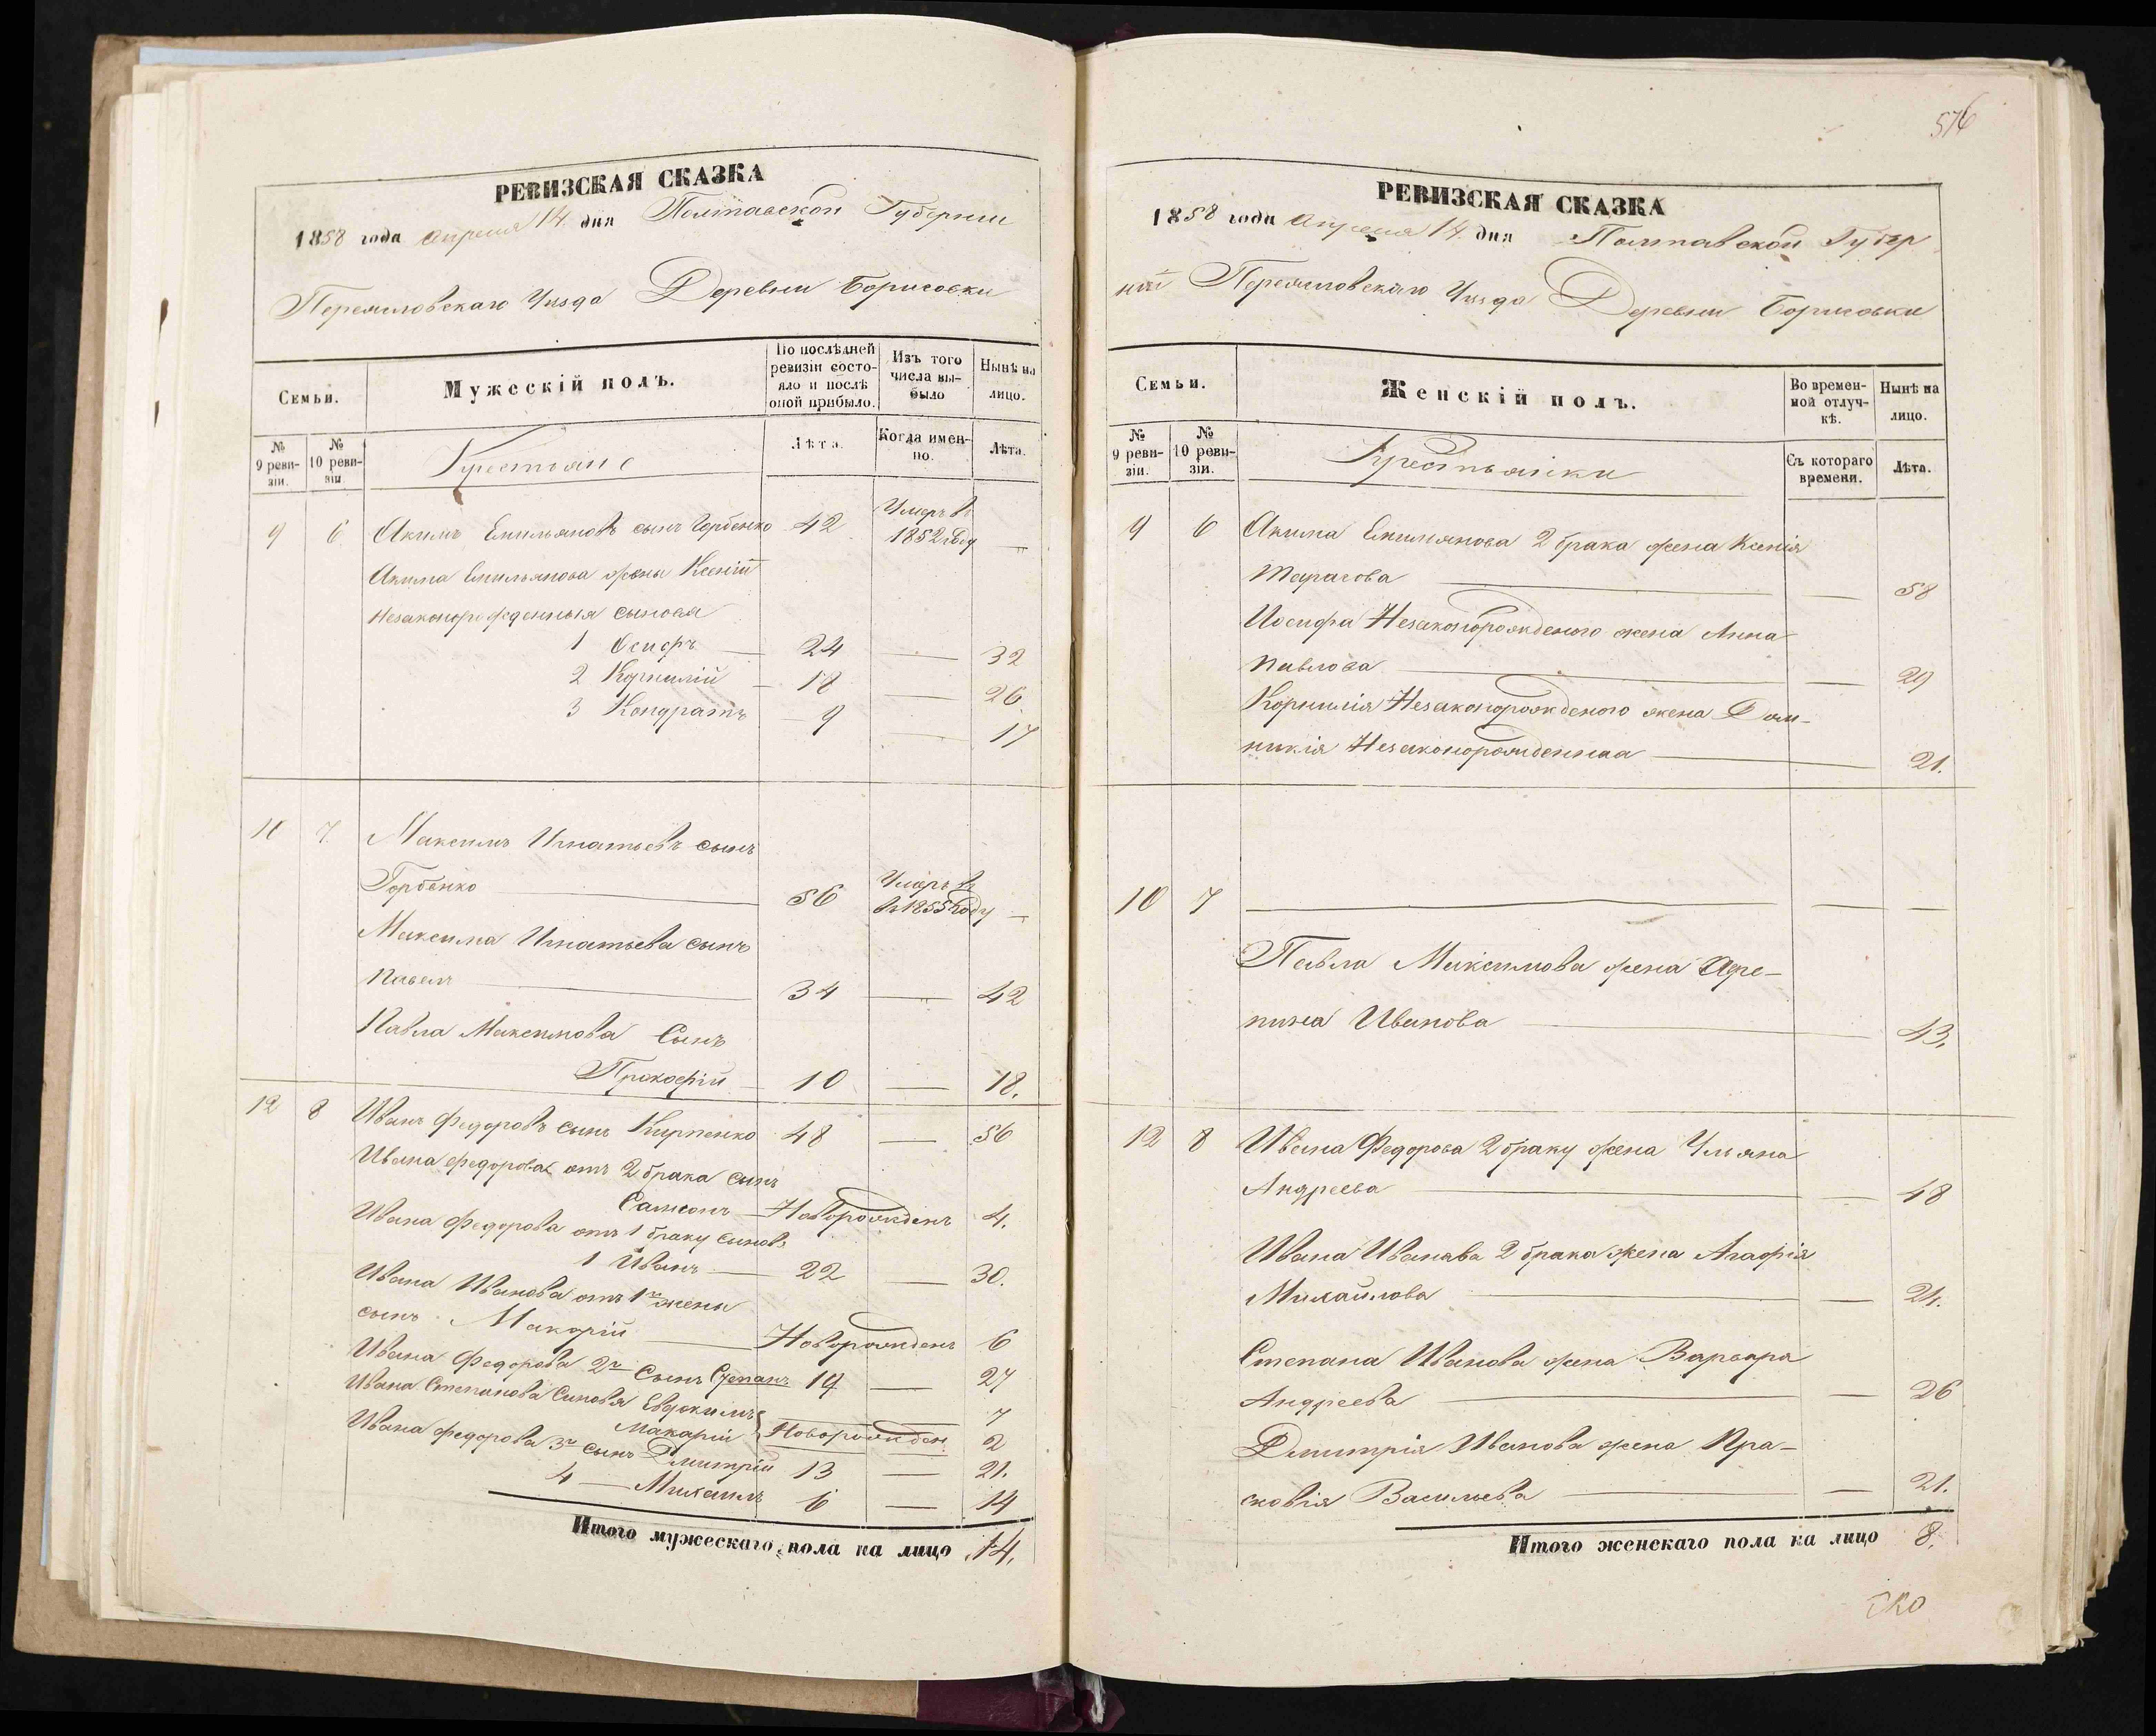 РЕВИЗСКАЯ СКАЗКА
1858 года Апреля 14. дня Полтавской Губернии
Уезда Деревни Борисовки
Семьи.
Мужескій полъ.
По послѣдней ревизіи состояло и послѣ оной прибыло.
Изъ того числа выбыло
Нынѣ на лицо.
№ 9 ревизіи.
№ 10 ревизіи
Крестьяне
Лѣта.
Когда именно.
Лѣта.
9 6 Акимъ Емильяновъ сынъ Горбенко 42 Умеръ въ 1852 году —
Акима Емильянова жены Ксеніи
Незаконорожденныя сыновья
1 Осифъ — 24 — 32
2 Корнилій — 18 — 26
3 Кондратъ 9 — 17
10 7. Максимъ Игнатьевъ сынъ
Горбенко — 56 Умеръ въ 1855 году —
Максима Игнатьева сынъ
Павелъ — 34 — 42
Павла Максимова Сынъ
Прокофій — 10 — 18.
12 8 Иванъ Федоровъ сынъ Кирпенко 48 — 56
Ивана Федорова отъ 2 брака сынъ
Самсонъ — Новорожденъ 4.
Ивана Федорова отъ 1 браку сыновъ
1 Иванъ — 22 — 30.
Ивана Иванова отъ 1й жены
сынъ Макарій — Новорожденъ 6
Ивана Федорова 2й Сынъ Степанъ 19 — 27
Ивана Степанова Синовья Евдокимъ 7
Макарій Новорожден 2
Ивана Федорова 3й сынъ Дмитрій 13 — 21.
4 — Михаилъ 6 — 14
Итого мужескаго пола на лицо 14.
576
РЕВИЗСКАЯ СКАЗКА
1858 года Апреля 14. дня Полтавской Губер
ніи Уезда Деревни Борисовки
Семьи.
Женскій полъ.
Во временной отлучкѣ.
Нынѣ на лицо.
№ 9 ревизіи.
№ 10 ревизіи.
Крестьянки
Съ котораго времени.
Лѣта.
9 6 Акима Емильянова 2 брака жена Ксенія
Тарасова — — 58
Иосифа Незаконорожденого жена Анна
Павлова — — 29
Корнилія Незаконорожденого жена Дом-
никія Незаконорожденная — 21.
10 7 — — —
Павла Максимова жена Агре-
пина Иванова — — 43.
12 8 Ивана Федорова 2 браку жена Ульяна
Андреева — — 48
Ивана Иванава 2 брака жена Агафія
Михайлова — — 24.
Степана Иванова жена Варвара
Андреева — — 26
Дмитрія Иванова жена Пра-
сковія Васильева — — 21.
Итого женскаго пола на лицо 8.